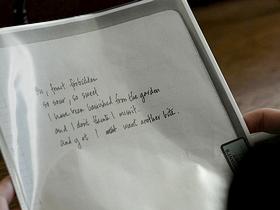 Oh, fruit forbidden
so sour, so sweet
I have been banished from the garden
and I dont think I merit.
and yet I want another bite.